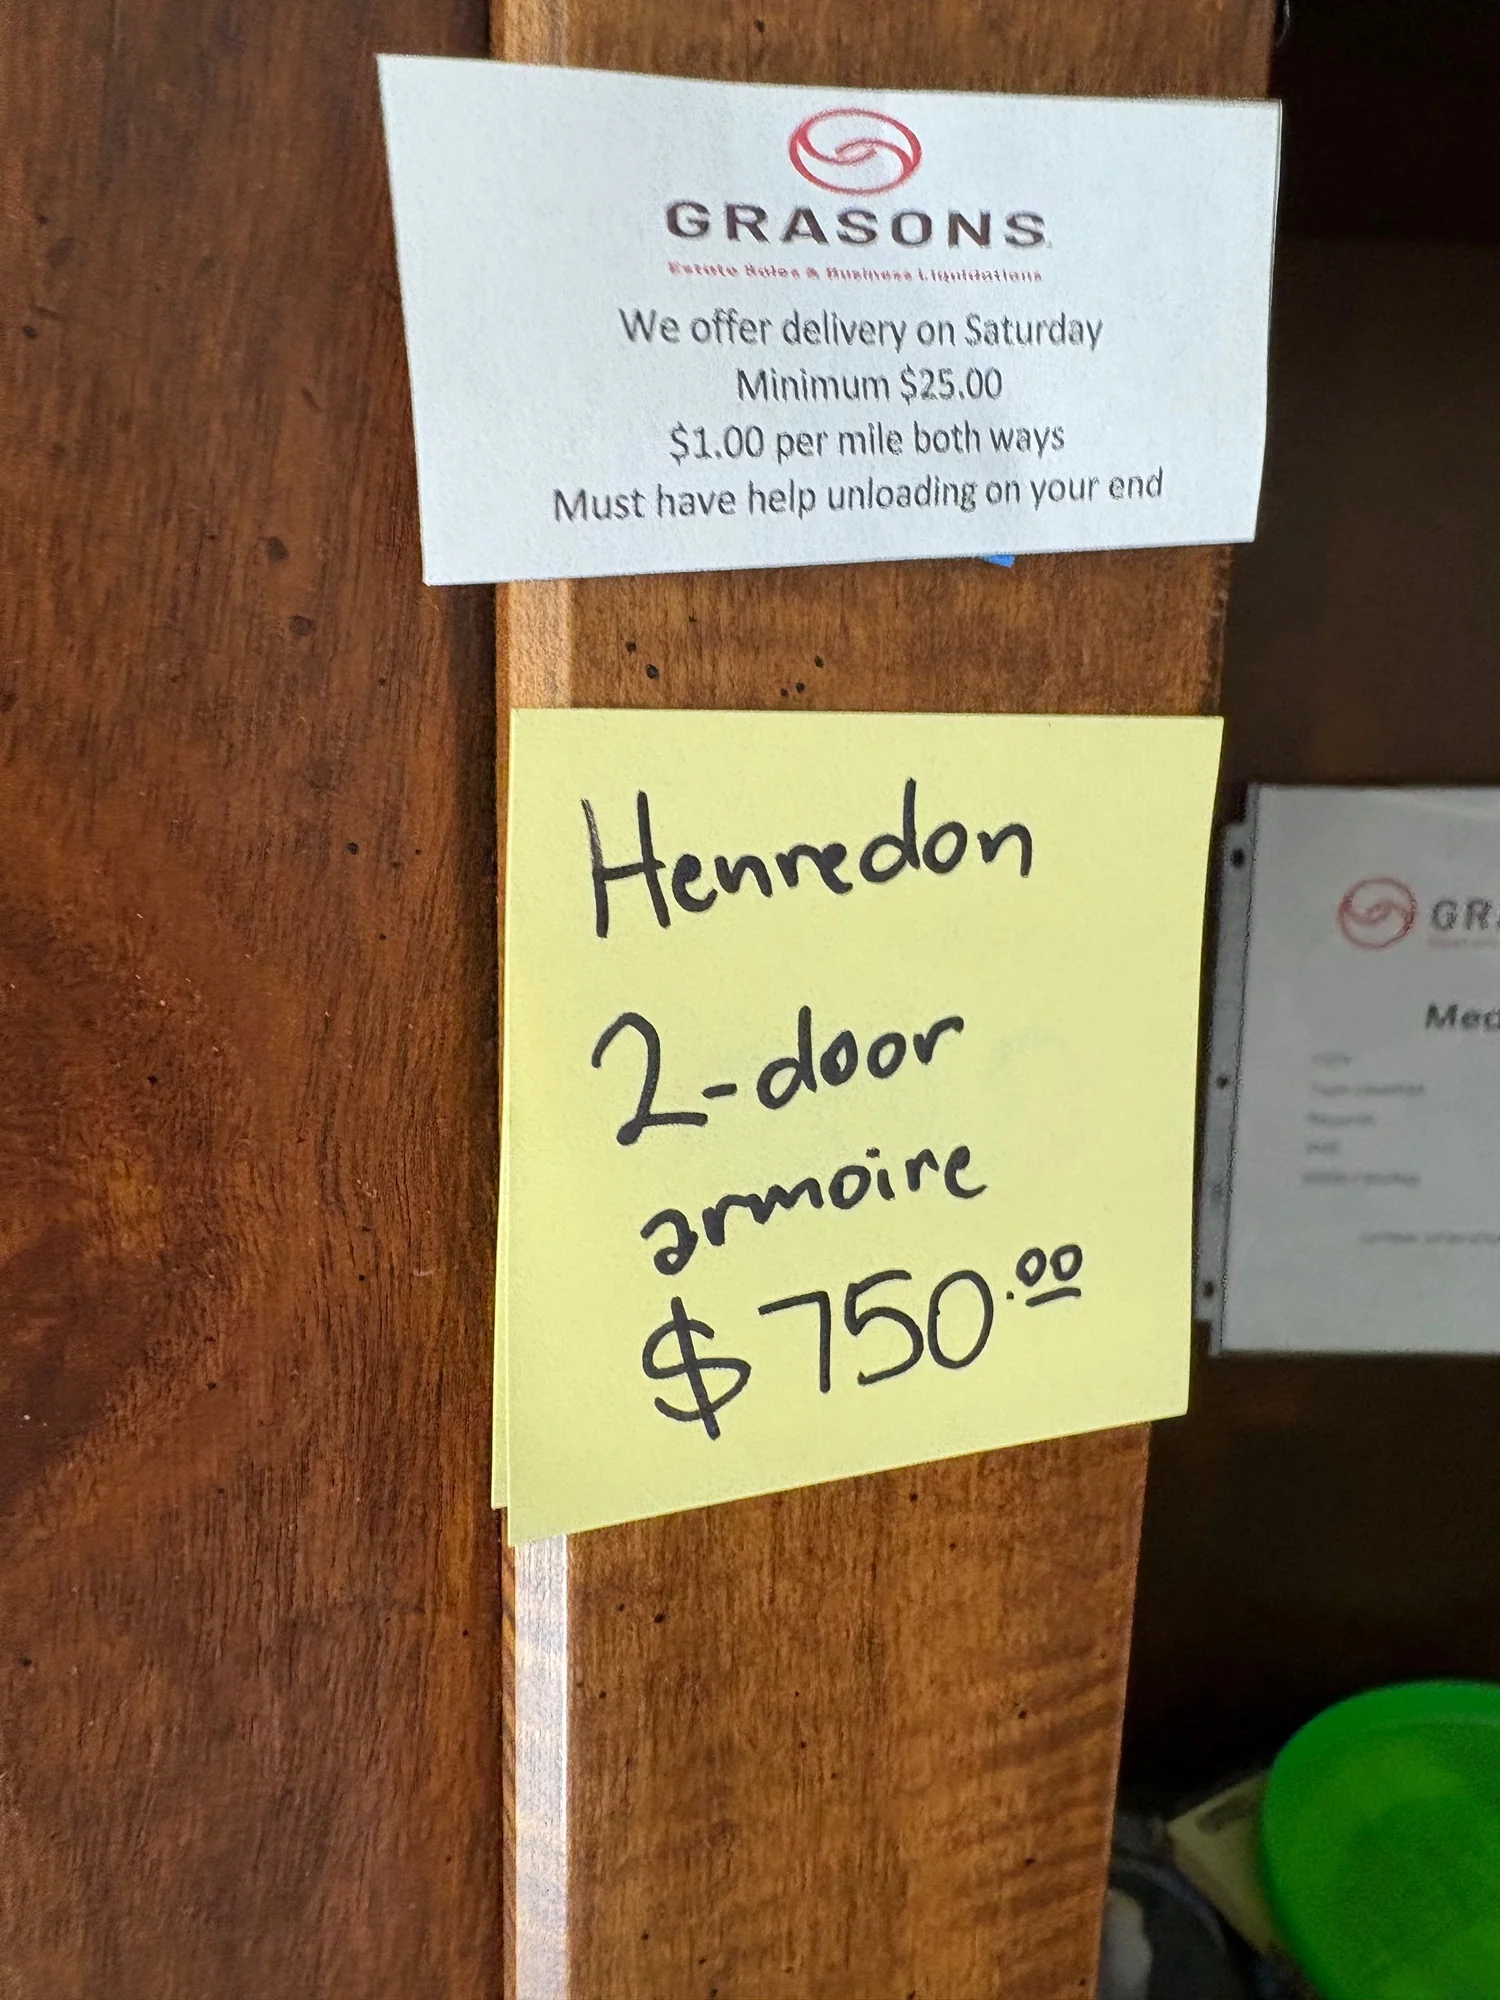 GRASONS
Estate Sales & Business Liquidations
We offer delivery on Saturday
Minimum $25.00
$1.00 per mile both ways
Must have help unloading on your end
Henredon
2-door
armoire
$750.00
GR
Med